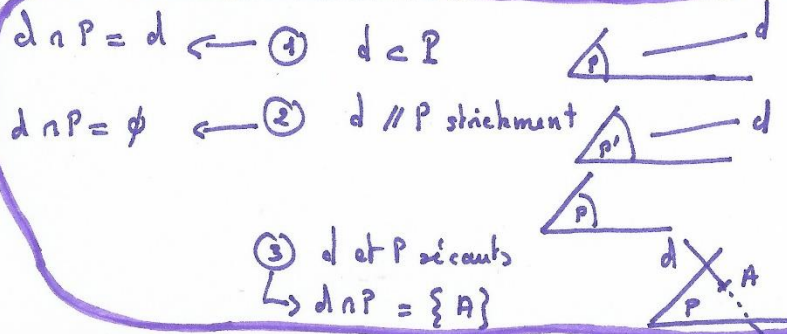 d ∩ P = d ← ① d ⊂ P P d
d ∩ P = ϕ ← ② d // P strictement P' d
P
③ d et P sécants d A
↳ d ∩ P = {A} P